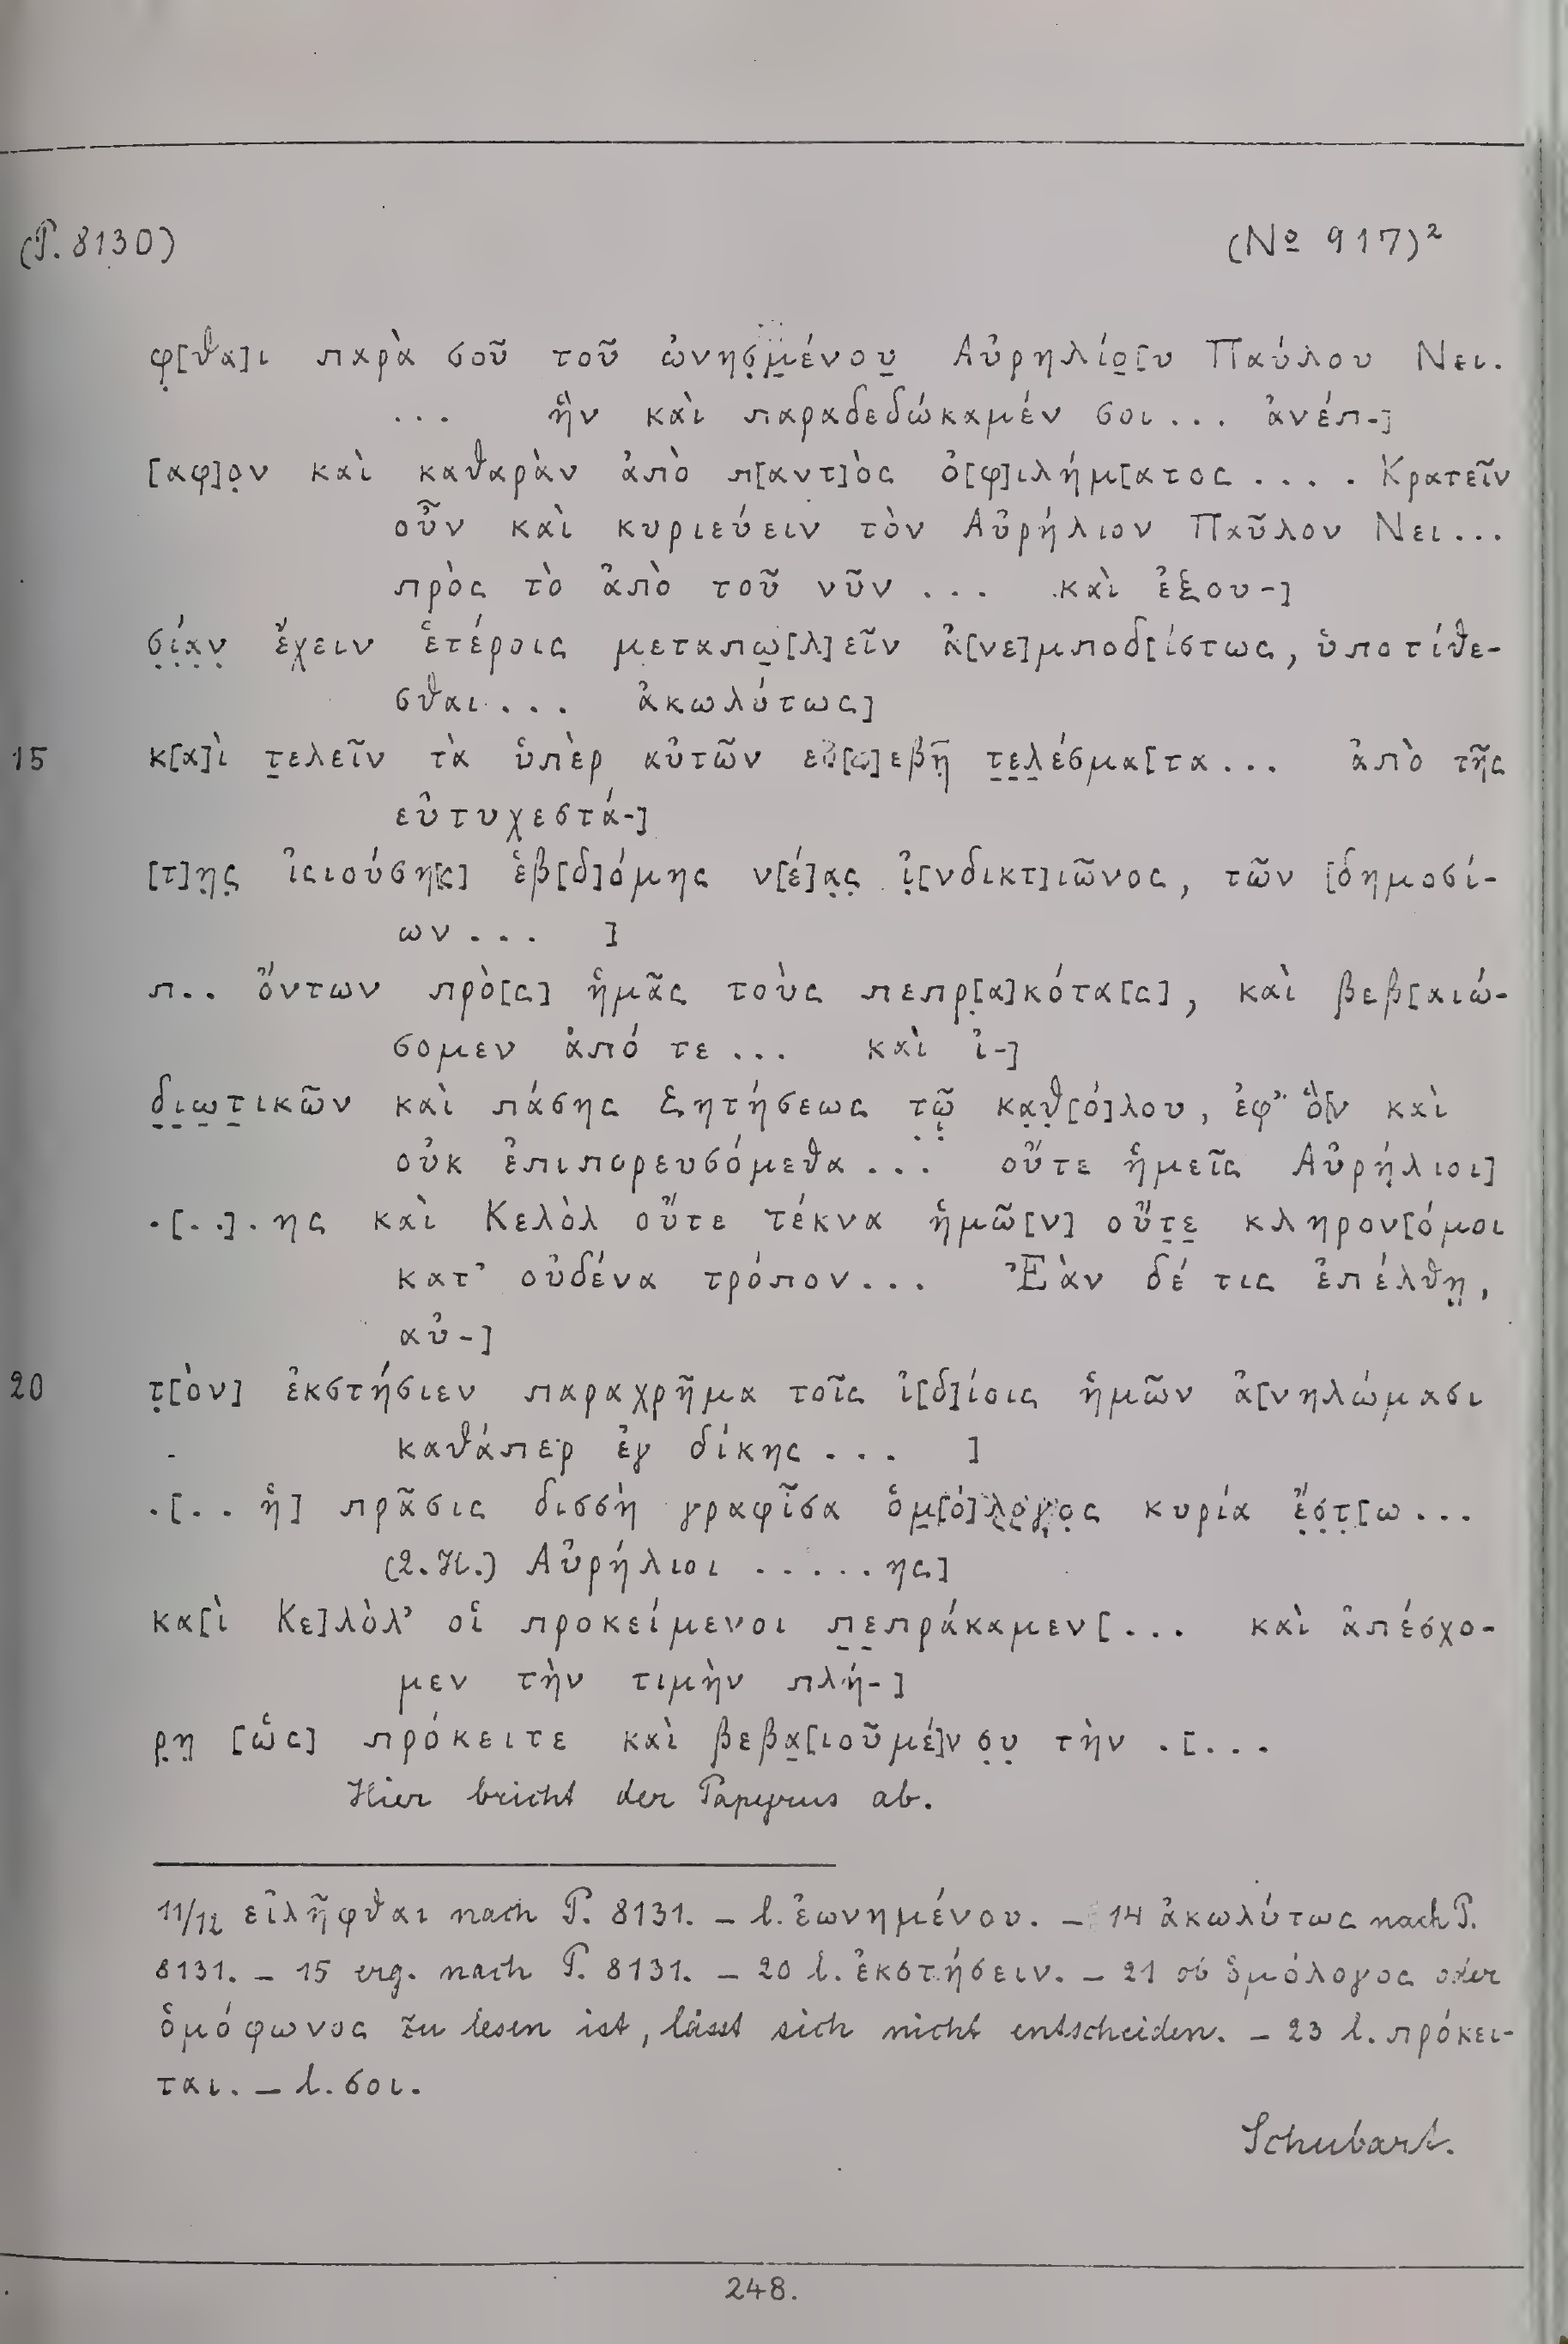 (P. 8130) (№ 917)²
φ̣[θα]ι παρὰ σοῦ τοῦ ὠνησ̣μ̣ένου̣ Αὐρηλίο̣[υ Παύλου Νει.
... ἣν καὶ παραδεδώκαμέν σοι... ἀνέπ-]
[αφ]ο̣ν καὶ καθαρὰν ἀπὸ π[αντ]ὸς ὀ[φ]ιλήμ[ατος.... Κρατεῖν
οὖν καὶ κυριεύειν τὸν Αὐρήλιον Παῦλον Νει...
πρὸς τὸ ἀπὸ τοῦ νῦν ... καὶ ἐξου-]
σ̣ί̣α̣ν̣ ἔχειν ἑτέροις μεταπω̣[λ]εῖν ἀ[νε]μποδ[ίστως, ὑποτίθε-
σθαι... ἀκωλύτως]
15 κ[α]ὶ τ̣ελεῖν τὰ ὑπὲρ αὐτῶν εὐ[σ]εβῆ τ̣ε̣λ̣έσμα[τα... ἀπὸ τῆς
εὐτυχεστά-]
[τ]η̣ς̣ ἰσιούση[ς] ἑβ[δ]όμης ν[έ]α̣ς̣ ἰ̣[νδικτ]ιῶνος, τῶν [δημοσί-
ων... ]
π.. ὄντων πρὸ[ς] ἡμᾶς τοὺς πεπρ̣[α]κότα[ς], καὶ βεβ[αιώ-
σομεν ἀπό τε... καὶ ἰ-]
δ̣ι̣ω̣τ̣ικῶν καὶ πάσης ζητήσεως τ̣ῷ̣ κα̣θ̣[ό]λου, ἐφ' ὃ[ν καὶ
οὐκ ἐπιπορευσόμεθα... οὔτε ἡμεῖς Αὐρήλιοι]
.[..].ης καὶ Κελὸλ οὔτε τέκνα ἡμῶ[ν] οὔτ̣ε̣ κληρον[όμοι
κατ' οὐδένα τρόπον... Ἐὰν δέ τις ἐπέλθῃ,
αὐ-]
20 τ̣[ὸν] ἐκστήσιεν παραχρῆμα τοῖς ἰ[δ]ίοις ἡμῶν ἀ[νηλώμασι
καθάπερ ἐγ δίκης... ]
.[.. ἡ] πρᾶσις δισσὴ γραφῖσα ὁμ̣[ό]λ̣ο̣γ̣ο̣ς κυρία ἔ̣σ̣τ̣[ω...
(2. H.) Αὐρήλιοι .....ης]
κα[ὶ Κε]λὸλ' οἱ προκείμενοι π̣ε̣πράκαμεν[... καὶ ἀπέσχο-
μεν τὴν τιμὴν πλή-]
ρ̣η̣ [ὡς] πρόκειτε καὶ βεβα̣[ιοῦμέ]ν σ̣υ̣ τὴν .[...
Hier bricht der Papyrus ab.
11/12 εἰλῆφθαι nach P. 8131. – l. ἐωνημένου. – 14 ἀκωλύτως nach P.
8131. – 15 erg. nach P. 8131. – 20 l. ἐκστήσειν. – 21 ob ὁμόλογος oder
ὁμόφωνος zu lesen ist, lässt sich nicht entscheiden. – 23 l. πρόκει-
ται. – l. σοι.
Schubart.
248.